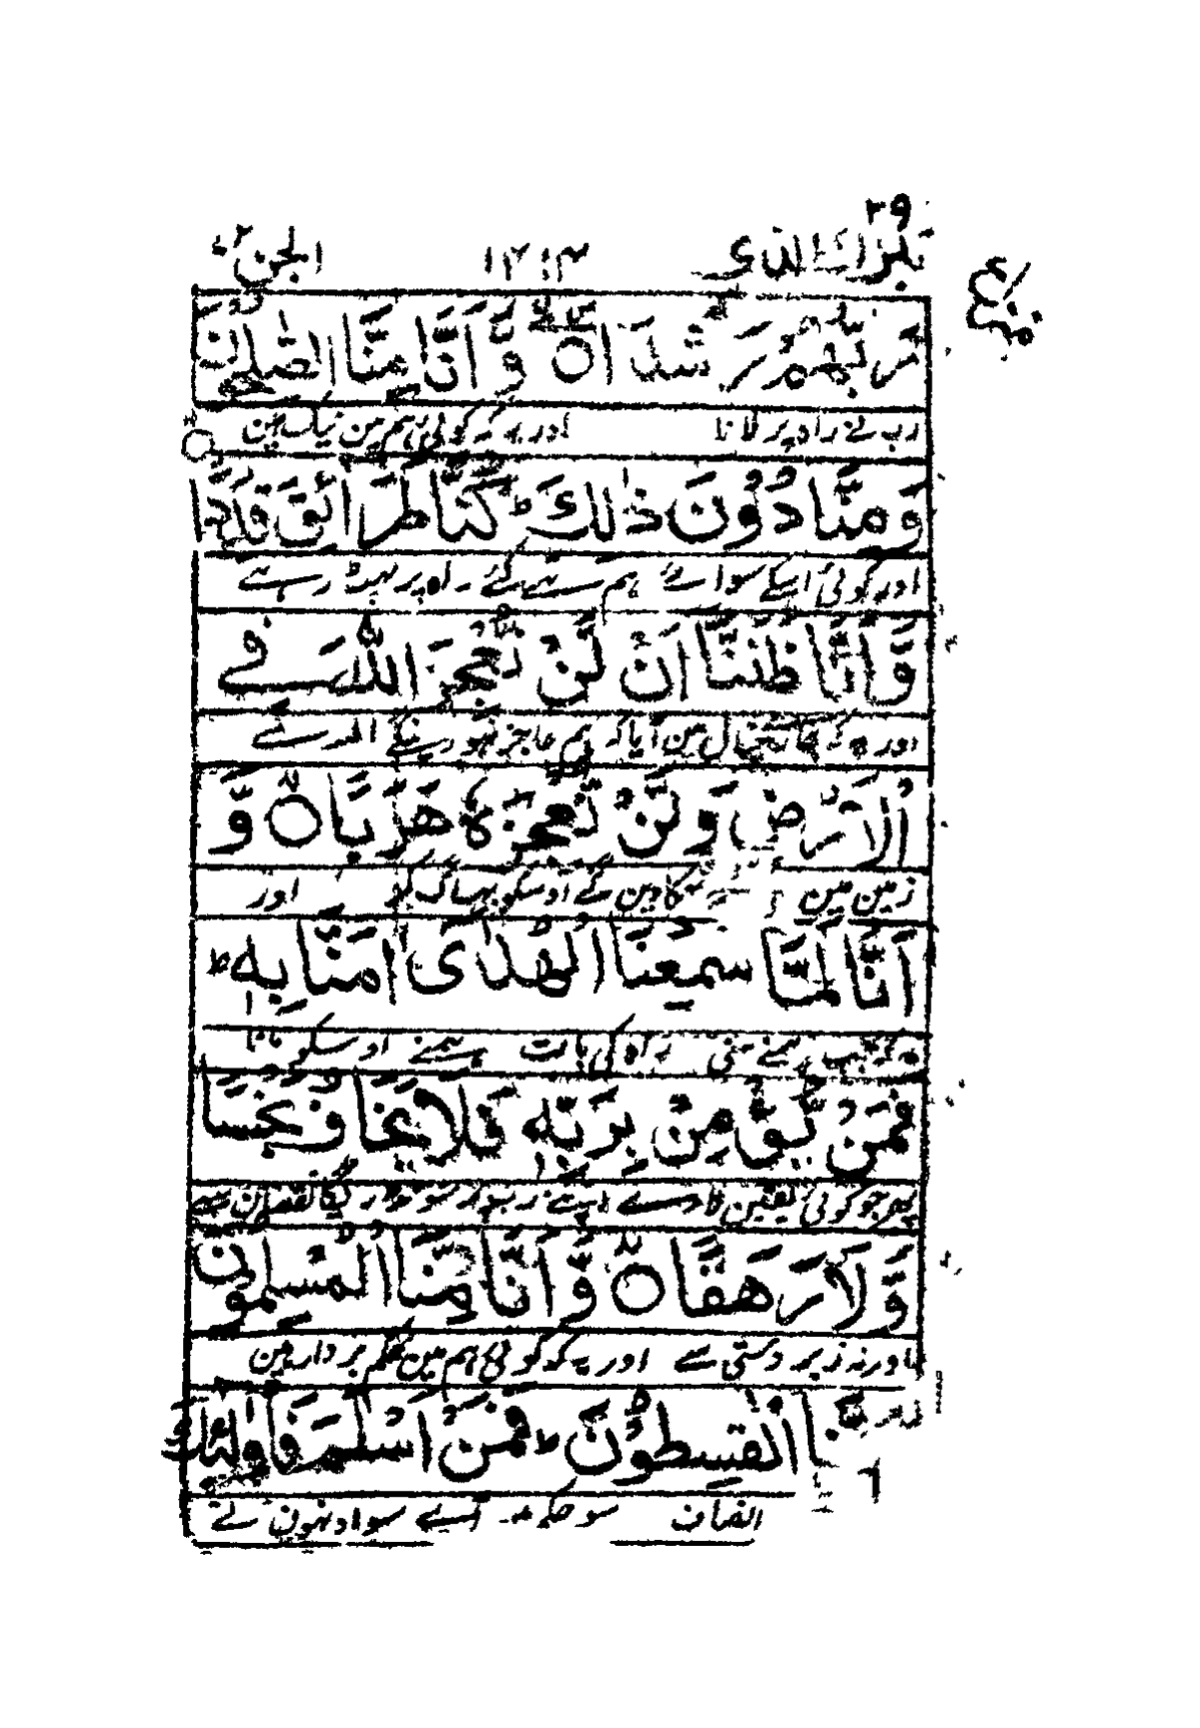 ۲۹
تبٰرك الذی ۱۴:۳ الجن ۷۲
رَبُّهُمْ رَشَدًا ۝ وَّاَنَّا مِنَّا الصّٰلِحُوْنَ
رب نے راہ پر لانا اور یہ کہ کوئی ہم مین نیک ہین
وَمِنَّا دُوْنَ ذٰلِكَ ؕ كُنَّا طَرَآئِقَ قِدَدًا
اور کوئی اسکے سوائے ہم تھے کئے راہ پر پھٹ رہے
وَّاَنَّا ظَنَنَّا اَنْ لَّنْ نُّعْجِزَ اللّٰهَ فِے
اور یہ کہ ہمارے خیال مین آیا کہ ہم عاجز نہ کر دینگے اللہ سے
الْاَرْضِ وَلَنْ نُّعْجِزَهٗ هَرَبًا ۝ وَّ
زمین مین تھکا دین گے اوسکو بھاگ کر اور
اَنَّا لَمَّا سَمِعْنَا الْهُدٰٓى اٰمَنَّا بِهٖ ؕ
یہ کہ جب ہمنے سنی راہ کی بات ہمنے اوسکو مانا
فَمَنْ يُّؤْمِنْ بِرَبِّهٖ فَلَا يَخَافُ بَخْسًا
پھر جو کوئی یقین لاوے اپنے رب پر سو نہ ڈریگا نقصان سے
وَّلَا رَهَقًا ۝ وَّاَنَّا مِنَّا الْمُسْلِمُوْنَ
اور نہ زبردستی سے اور یہ کہ کوئی ہم مین حکم بردار ہین
نَّا الْقٰسِطُوْنَ ؕ فَمَنْ اَسْلَمَ فَاُولٰٓئِكَ
انصاف سو جو آئے سو اونہون نے